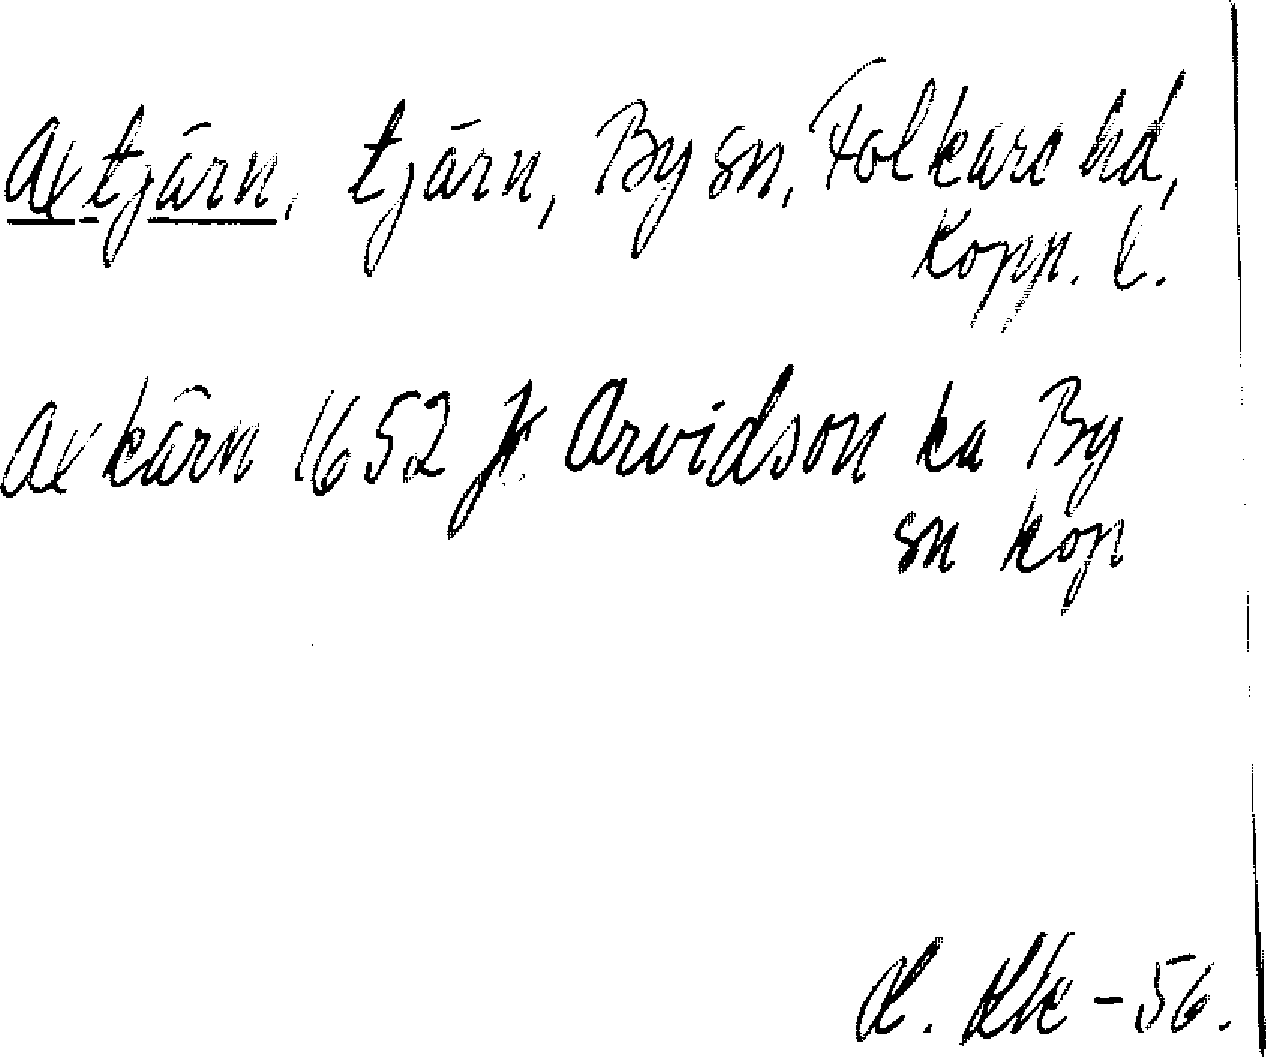 Axtjärn, tjärn, By sn, Folkare hd,
Kopp. l.
Axkärn 1652 Arvidson ka By
sn Kop
-56.